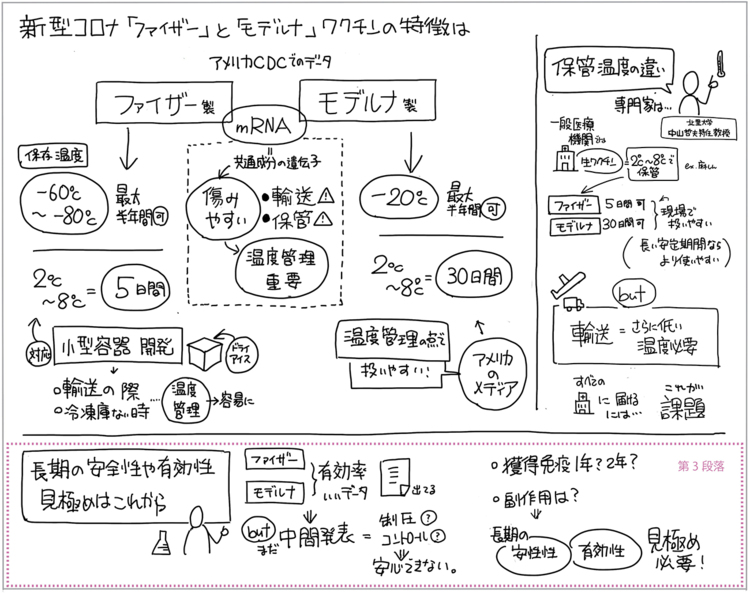 新型コロナ「ファイザー」と「モデルナ」ワクチンの特徴は
アメリカCDCでのデータ
ファイザー製
モデルナ製
mRNA
共通成分の遺伝子
保存温度
-60℃
〜-80℃
最大
半年間可
2℃
〜8℃=5日間
傷み
やすい
●輸送⚠
●保管⚠
温度管理
重要
-20℃
最大
半年間可
2℃
〜8℃=30日間
対応
小型容器 開発
ドライ
アイス
○輸送の際
○冷凍庫ない時
....
温度
管理
→容易に
温度管理の点で
扱いやすい!
アメリカ
の
メディア
保管温度の違い
専門家は…
北里大学
中山哲夫特任教授
一般医療
機関では
生ワクチン=2℃〜8℃で
保管
ex.麻しん
ファイザー 5日間可
モデルナ 30日間可
現場で
扱いやすい
(長い安定期間なら
より使いやすい)
but
輸送=さらに低い
温度必要
すべての
に届ける
には…
これが
課題
長期の安全性や有効性
見極めはこれから
ファイザー
モデルナ
有効率
いいデータ
出てる
but
まだ
中間発表=
制圧?
コントロール?
安心できない。
第3段落
●獲得免疫1年?2年?
●副作用は?
長期の
安性性
有効性
見極め
必要!